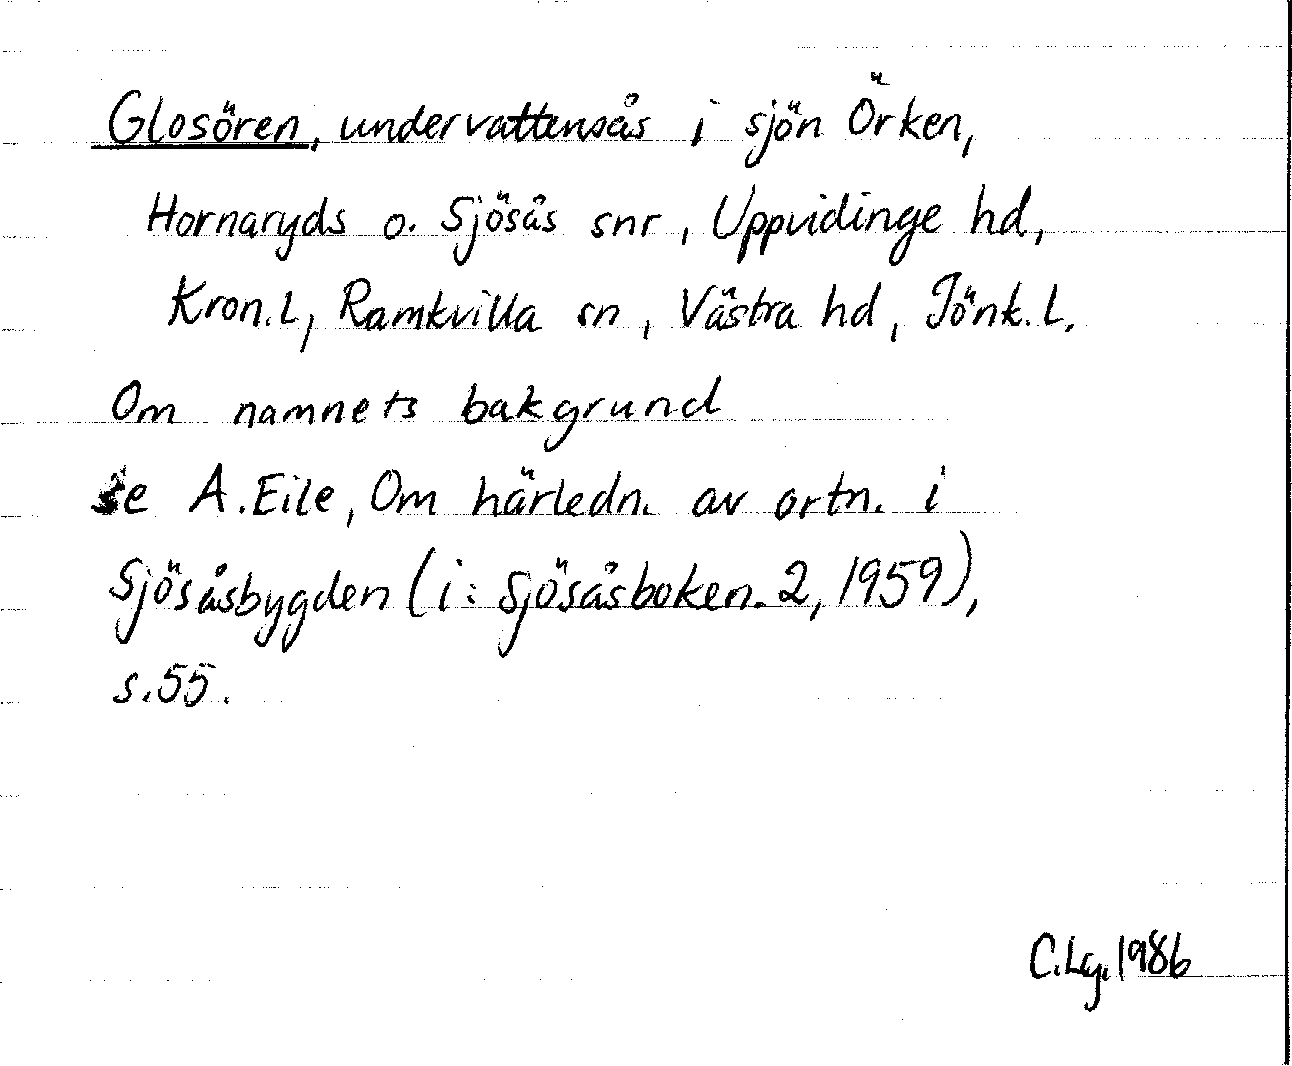 Glosören, undervattensås i sjön Örken,
Hornaryds o. Sjösås snr, Uppvidinge hd,
Kron. L, Ramkvilla sn, Västra hd, Jönk. L.
Om namnets bakgrund
se A. Eile, Om härledn. av ortn. i
Sjösåsbygden (i: Sjösåsboken. 2, 1959),
s. 55.
C. Lg. 1986